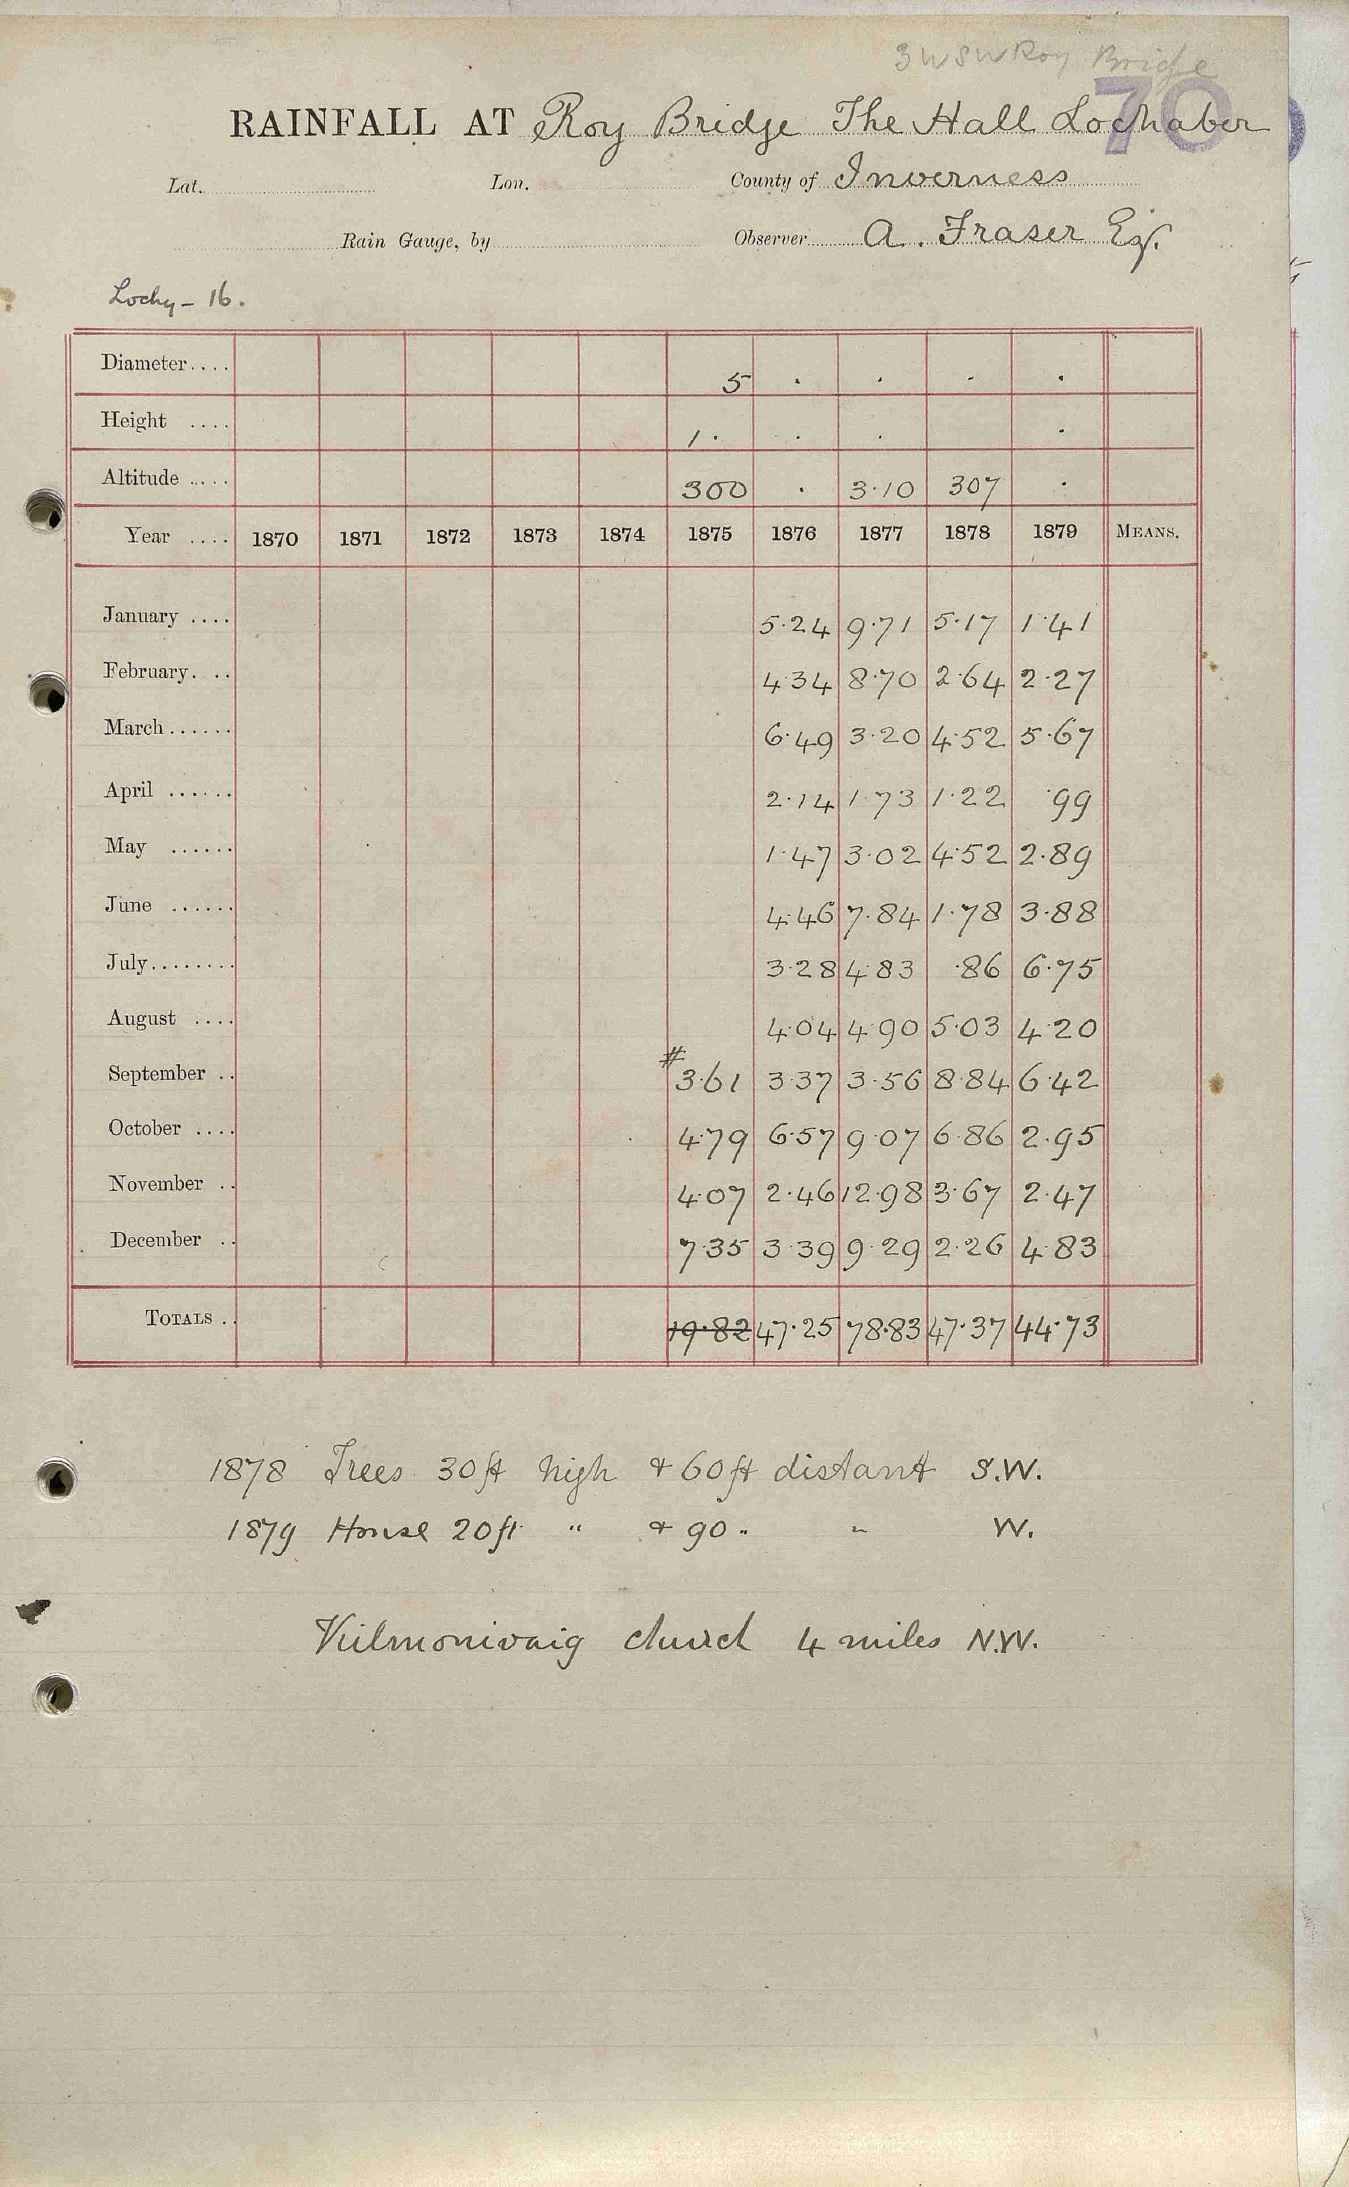 3 W S W Roy Bridge
70
RAINFALL AT Roy Bridge The Hall Lochaber
Lat. Lon. County of Inverness
Rain Gauge, by Observer A. Fraser Esq.
Lochy - 16.
Diameter.... 5 . . . .
Height .... 1. . . .
Altitude ..... 300 . 3.10 307 .
Year .... 1870 1871 1872 1873 1874 1875 1876 1877 1878 1879 MEANS.
January .... 5.24 9.71 5.17 1.41
February. .. 4.34 8.70 2.64 2.27
March...... 6.49 3.20 4.52 5.67
April ...... 2.14 1.73 1.22 .99
May ...... 1.47 3.02 4.52 2.89
June ...... 4.46 7.84 1.78 3.88
July........ 3.28 4.83 .86 6.75
August .... 4.04 4.90 5.03 4.20
September .. # 3.61 3.37 3.56 8.84 6.42
October .... 4.79 6.57 9.07 6.86 2.95
November .. 4.07 2.46 12.98 3.67 2.47
December .. 7.35 3.39 9.29 2.26 4.83
TOTALS .. 19.82 47.25 78.83 47.37 44.73
1878 Trees 30ft high & 60ft distant S.W.
1879 House 20ft " & 90 " " W.
Kilmonivaig church 4 miles N.W.